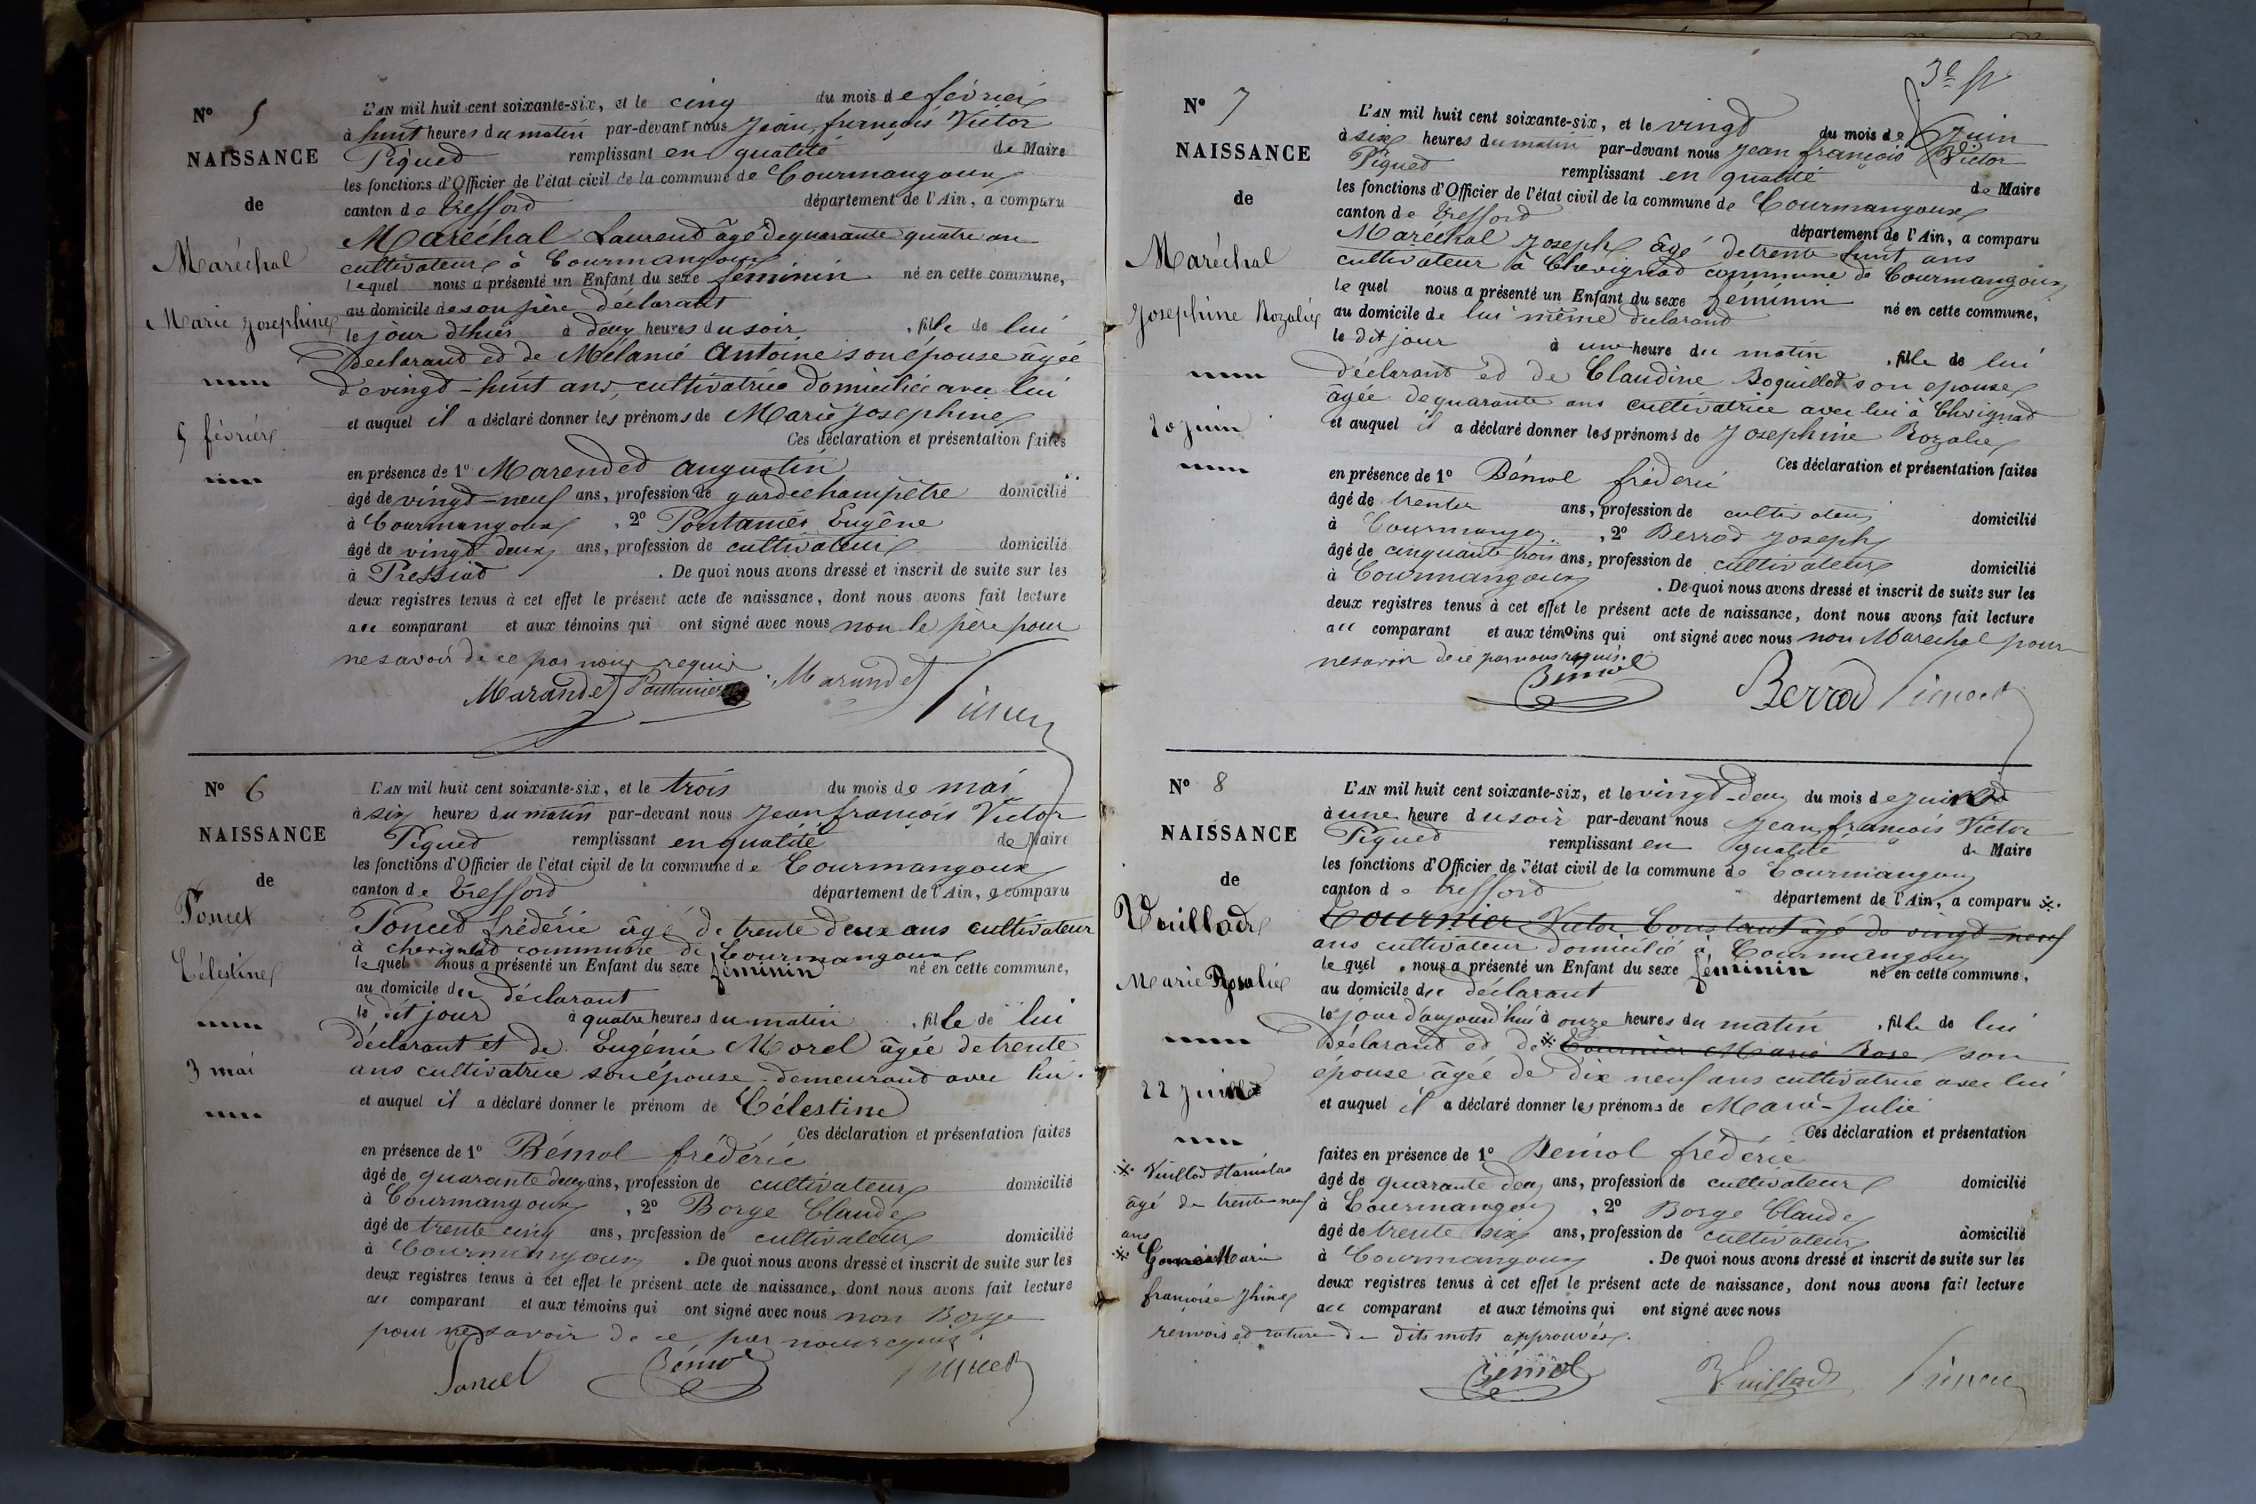 N° 5
NAISSANCE
de
Maréchal
Marie Josephine
5 février
L'AN mil huit cent soixante-six, et le cinq du mois de février
à huit heures du matin par-devant nous Jean françois Victor
Piqued remplissant en qualité de Maire
les fonctions d'Officier de l'état civil de la commune de Courmangoux
canton de Trefford département de l'Ain, a comparu
Maréchal Laurend âgé de quarante quatre an
cultivateur à Courmangoux
lequel nous a présenté un Enfant du sexe féminin né en cette commune,
au domicile de son père déclarant
le jour d'hier à deux heures du soir, fille de lui
Déclarand ed de Mélanie Antoine son épouse âgée
de vingt-huit ans, cultivatrice domiciliée avec lui
et auquel il a déclaré donner les prénoms de Marie Josephine
Ces déclaration et présentation faites
en présence de 1° Marended augustin
âgé de vingt-neuf ans, profession de garde champêtre domicilié
à Courmangoux, 2° Pontanier Eugêne
âgé de vingt deux ans, profession de cultivateur domicilié
à Pressiad. De quoi nous avons dressé et inscrit de suite sur les
deux registres tenus à cet effet le présent acte de naissance, dont nous avons fait lecture
au comparant et aux témoins qui ont signé avec nous non le père pour
ne savoir de ce par nous requis
Marandet Pontanier Marundet
N° 6
NAISSANCE
de
Poncet
Célestine
3 mai
L'AN mil huit cent soixante-six, et le trois du mois de mai
à six heures du matin par-devant nous Jean françois Victor
Piqued remplissant en qualité de Maire
les fonctions d'Officier de l'état civil de la commune de Courmangoux
canton de Trefford département de l'Ain, a comparu
Ponced frédéric âgé de trente deux ans cultivateur
à chevignad commune de Courmangoux
lequel nous a présenté un Enfant du sexe féminin né en cette commune,
au domicile du déclarant
le dit jour à quatre heures du matin, fille de lui
déclarant et de Eugénie Morel âgée de trente
ans cultivatrice son épouse demeurand avec lui.
et auquel il a déclaré donner le prénom de Célestine
Ces déclaration et présentation faites
en présence de 1° Bémol frédéric
âgé de quarante deux ans, profession de cultivateur domicilié
à Courmangoux, 2° Borge Claude
âgé de trente cinq ans, profession de cultivateur domicilié
à Courmangoux. De quoi nous avons dressé et inscrit de suite sur les
deux registres tenus à cet effet le présent acte de naissance, dont nous avons fait lecture
au comparant et aux témoins qui ont signé avec nous non Borge
pour ne savoir de ce par nous requis.
Poncet Bémol Piqued
3e
N° 7
NAISSANCE
de
Maréchal
Josephine Rozalie
20 juin
L'AN mil huit cent soixante-six, et le vingt du mois de Juin
à six heures du matin par-devant nous Jean françois Victor
Piqued remplissant en qualité de Maire
les fonctions d'Officier de l'état civil de la commune de Courmangoux
canton de Trefford département de l'Ain, a comparu
Maréchal Joseph âgé de trente huit ans
cultivateur à Chevignad commune de Courmangoux
lequel nous a présenté un Enfant du sexe féminin né en cette commune,
au domicile de lui même déclarand
le dit jour à une heure du matin, fille de lui
déclarant ed de Claudine Boquillod son epouse
âgée de quarante ans cultivatrice avec lui à Chevignad
et auquel il a déclaré donner les prénoms de Josephine Rozalie
Ces déclaration et présentation faites
en présence de 1° Bémol fréderic
âgé de trente ans, profession de cultivateur domicilié
à Courmangoux, 2° Berrod Joseph
âgé de cinquante trois ans, profession de cultivateur domicilié
à Courmangoux. De quoi nous avons dressé et inscrit de suite sur les
deux registres tenus à cet effet le présent acte de naissance, dont nous avons fait lecture
au comparant et aux témoins qui ont signé avec nous non Maréchal pour
ne savoir de ce par nous requis.
Bémol Berrod Piqued
N° 8
NAISSANCE
de
Vuillod
Marie Rosalie
22
※ Vuillod Stanislas
âgé de trente-neuf
ans
※ Marie
françoise Jhine
L'AN mil huit cent soixante-six, et le vingt-deux du mois de
à une heure du soir par-devant nous Jean françois Victor
Piqued remplissant en qualité de Maire
les fonctions d'Officier de l'état civil de la commune de Courmangoux
canton de Trefford département de l'Ain, a comparu ※.
Tournier Victor Constant âgé de vingt-neuf
ans cultivateur domicilié à Courmangoux
lequel nous a présenté un Enfant du sexe féminin né en cette commune,
au domicile du déclarant
le jour d'aujourd'hui à onze heures du matin, fille de lui
Déclarand ed de ※ Tournier Marie Rose son
épouse âgée de dix neuf ans cultivatrice avec lui
et auquel il a déclaré donner les prénoms de Marie-Julie
Ces déclaration et présentation
faites en présence de 1° Bémol frédéric
âgé de quarante deux ans, profession de cultivateur domicilié
à Courmangoux, 2° Borge Claude
âgé de trente six ans, profession de cultivateur domicilié
à Courmangoux. De quoi nous avons dressé et inscrit de suite sur les
deux registres tenus à cet effet le présent acte de naissance, dont nous avons fait lecture
au comparant et aux témoins qui ont signé avec nous
renvois ed rature de dits mots approuvés.
Bémol Vuillod